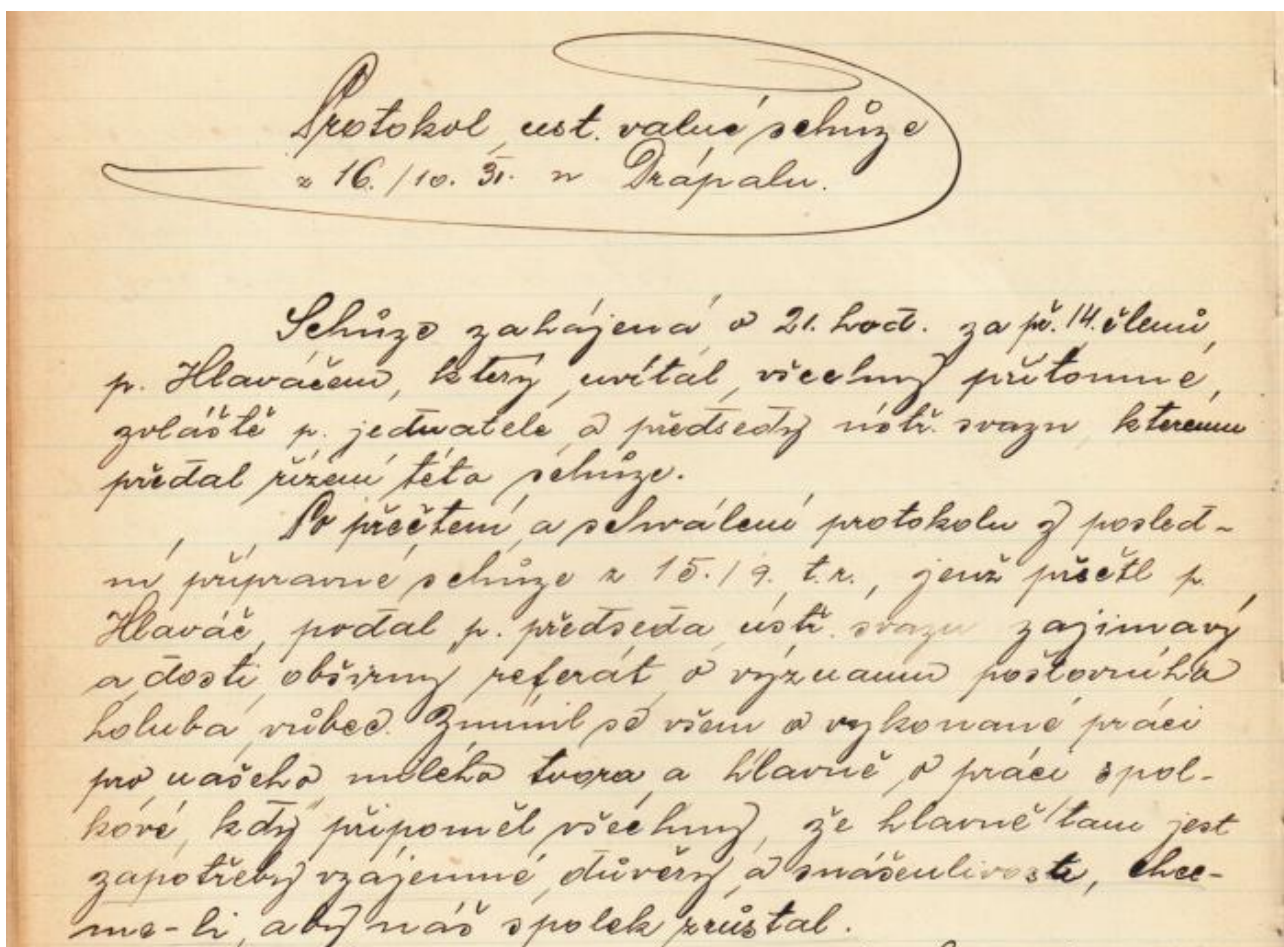 Protokol ust. valné schůze
z 16./10. 31. u Drápalu.
Schůze zahájená o 21. hod. za př. 14. členů,
p. Hlaváčem, který uvítal všechny přítomné,
zvláště p. jednatele a předsedy ústř. svazu kterému
předal řízení této schůze.
Po přečtení a schválení protokolu z posled-
ní přípravné schůze z 15./9. t.r., jenž přečtl p.
Hlaváč, podal p. předseda ústř. svazu zajimavý
a dosti obširný referát o významu poštovního
holuba vůbec. Zmínil se všem o vykonané práci
pro našeho milého tvora a hlavně o práci spol-
kové, kdy připoměl všechny, že hlavně tam jest
zapotřebý vzájemné důvěry a snášenlivosti, chce-
me-li, aby náš spolek zrůstal.